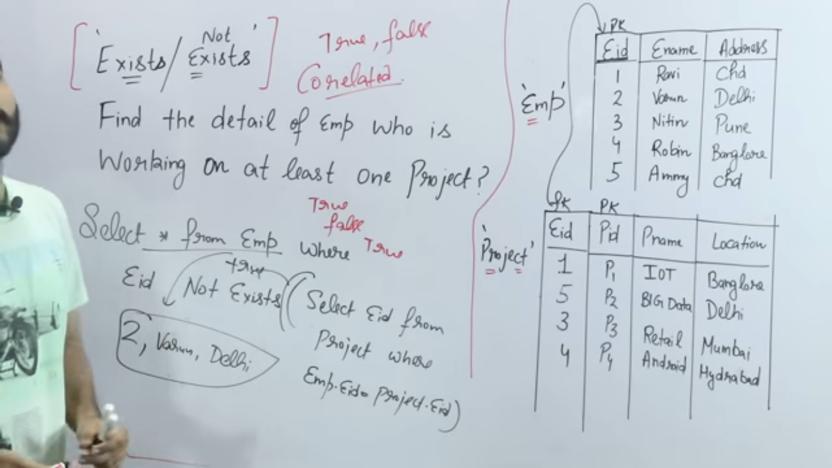 ['Exists/ Not Exists'] True, false
Corelated.
Find the detail of Emp who is
Working on at least one Project?
True
false
Select * from Emp where True
true
Eid Not Exists (Select Eid from
Project where
Emp.Eid= Project.Eid)
2, Varun, Delhi
'Emp'
PK
Eid Ename Address
1 Ravi Chd
2 Varun Delhi
3 Nitin Pune
4 Robin Banglore
5 Ammy Chd
'Project'
fK PK
Eid Pid Pname Location
1 P1 IOT Banglore
5 P2 BIG Data Delhi
3 P3 Retail Mumbai
4 P4 Android Hydrabad